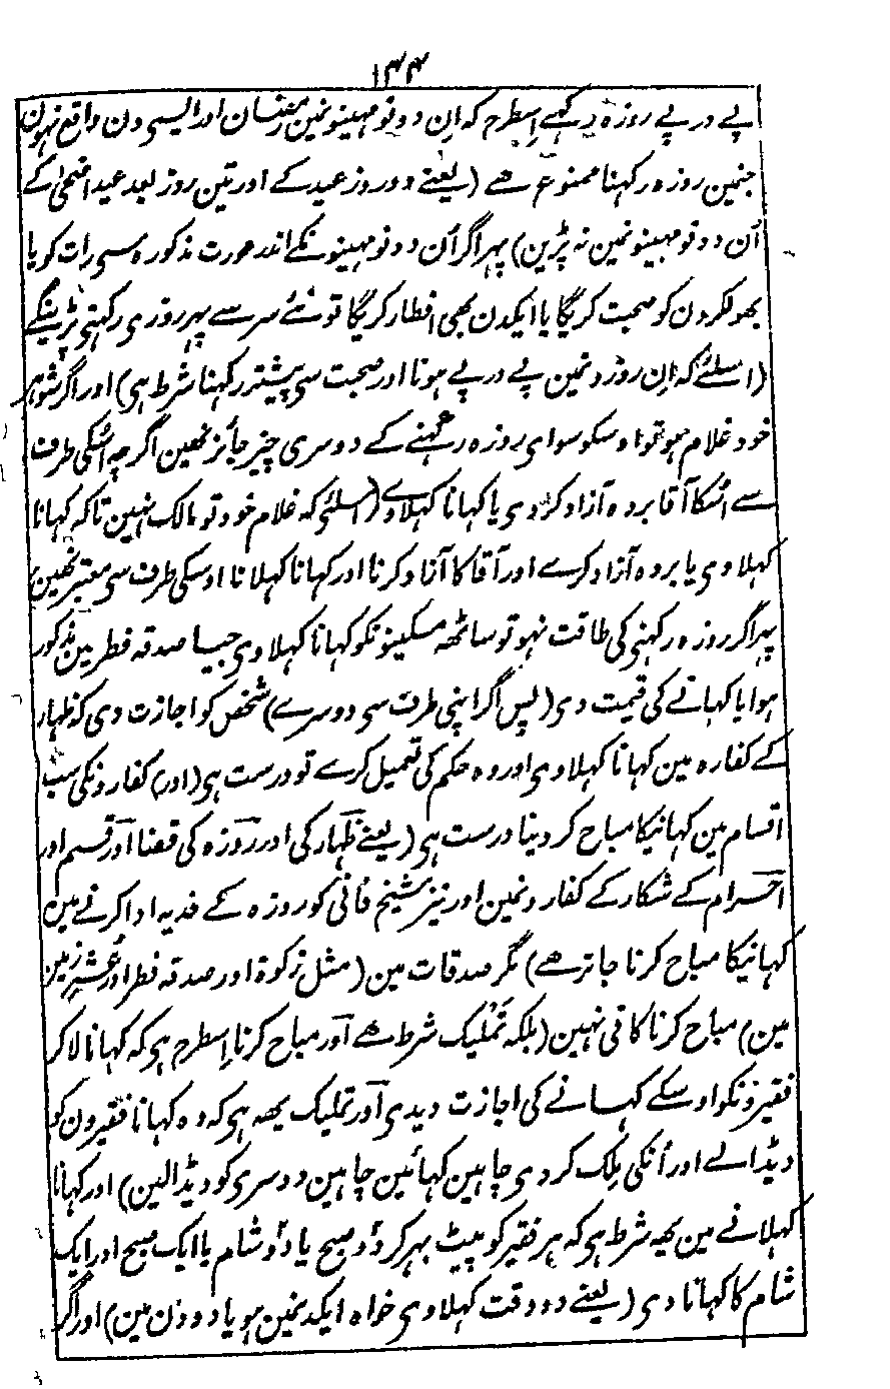 ۱۴۴
پے در پے روزہ رکہے اِسطرح کہ اِن دونو مہینونمین رمضان اور ایسے دن واقع نہون
جنمین روزہ رکہنا ممنوع ھے (یعنے دو روز عید کے اور تین روز بعد عید اضحی کے
اُن دونو مہینونمین نہ پڑین) پہر اگر اُن دونو مہینونکے اندر عورت مذکورہ سی رات کو یا
بھولکر دن کو صحبت کریگا یا ایکدن بھی افطار کریگا تو نئے سر سے پہر روزی رکہنی پڑینگے
(اسلئے کہ اِن روزونمین پے در پے ہونا اور صحبت سی پیشتر رکہنا شرط ہی) اور اگر شوہر
خود غلام ہو تو اوسکو سوای روزہ رکہنے کے دوسری چیز جائز نھین اگرچہ اُسکی طرف
سے اُسکا آقا بردہ آزاد کردی یا کہانا کہلاوے (اسلئی کہ غلام خود تو مالک نہین تاکہ کہانا
کہلاوی یا بردہ آزاد کرے اور آقا کا آزاد کرنا اور کہانا کہلانا اوسکی طرف سی معتبر نھین)
پہر اگر روزہ رکہنی کی طاقت نہو تو ساٹھہ مسکینونکو کہانا کہلاوی جیسا صدقہ فطر مین مذکور
ہوا یا کہانے کی قیمت دی (پس اگر اپنی طرف سی دوسرے) شخص کو اجازت دی کہ ظہار
کے کفارہ مین کہانا کہلاوی اور وہ حکم کی تعمیل کرے تو درست ہی (اور) کفارونکی سب
اقسام مین کہانیکا مباح کر دینا درست ہی (یعنے ظہار کی اور روزہ کی قضا اور قسم اور
احرام کے شکار کے کفارونمین اور نیز شیخ فانی کو روزہ کے فدیہ ادا کرنے مین
کہانیکا مباح کرنا جائز ھے) مگر صدقات مین (مثل زکوۃ اور صدقہ فطر اور عُشر زمین
مین) مباح کرنا کافی نہین (بلکہ تملیک شرط ھے اور مباح کرنا اِسطرح ہی کہ کہانا لاکر
فقیرونکو اوسکے کہانے کی اجازت دیدی اور تملیک یھہ ہی کہ وہ کہانا فقیرون کو
دیڈالے اور اُنکی مِلک کردی چاہین کہائین چاہین دوسری کو دیڈالین) اور کہانا
کہلانے مین یھہ شرط ہی کہ ہر فقیر کو پیٹ بہر کر دو صبح یا دو شام یا ایک صبح اور ایک
شام کا کہانا دی (یعنے دو وقت کہلاوی خواہ ایکدنمین ہو یا دو دن مین) اور اگر